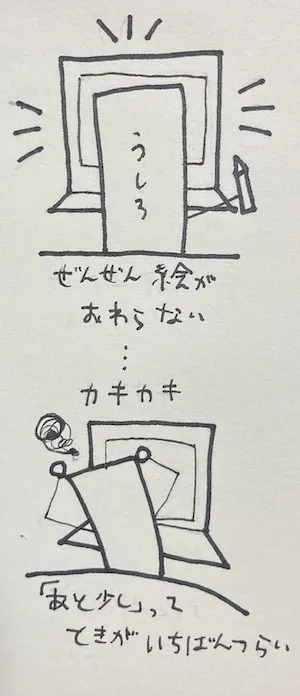 うしろ
ぜんぜん 絵が
おわらない
⋮
カキカキ
「あと少し」って
ときが いちばんつらい